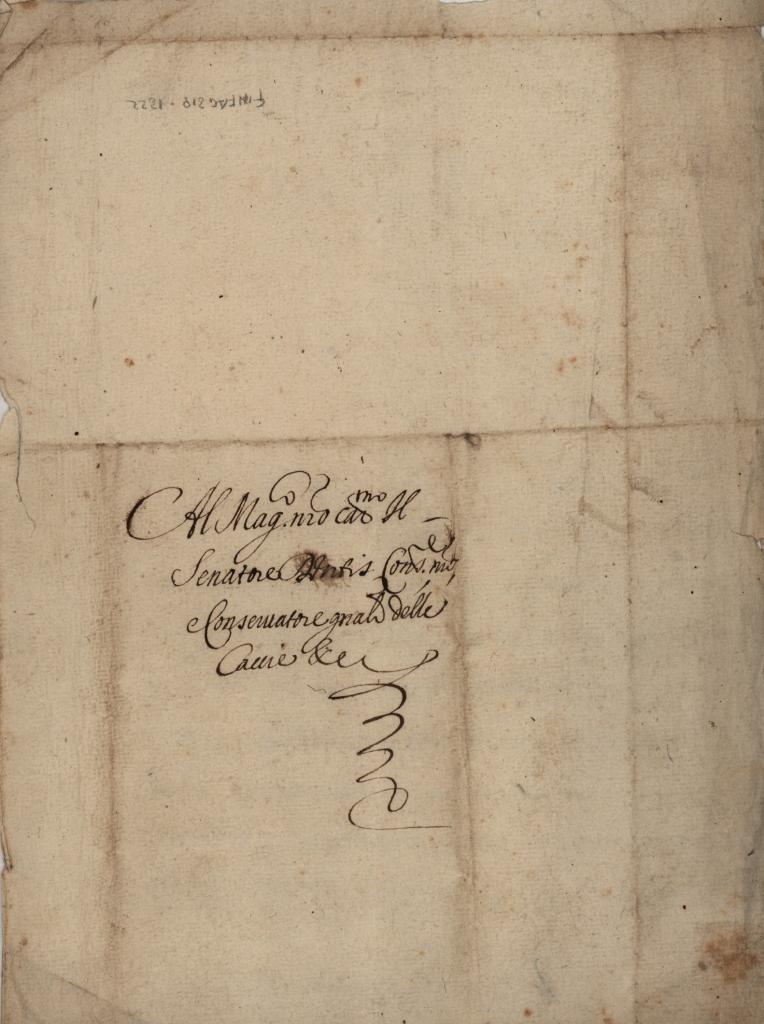 FINFAG 210 - 1222
Al Mag.co nro car.mo Il
Senatore Cons.re nro,
Conseruatore gnale delle
Caccie &c